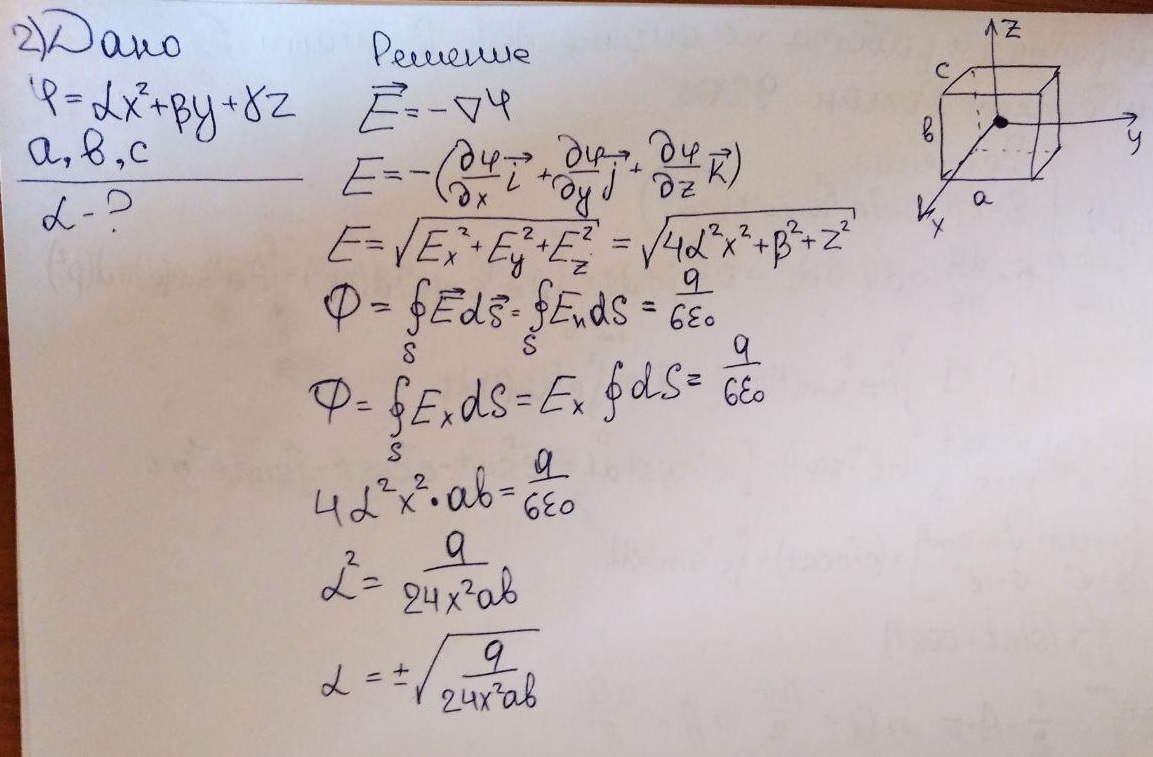 2) Дано
φ = αx² + βy + γz
a, b, c
α - ?
Решение
E⃗ = -∇φ
E = -(∂φ/∂x i⃗ + ∂φ/∂y j⃗ + ∂φ/∂z k⃗)
E = √(Ex² + Ey² + Ez²) = √(4α²x² + β² + z²)
Φ = ∮S E⃗ dS⃗ = ∮S En dS = q/6ε0
Φ = ∮S Ex dS = Ex ∮ dS = q/6ε0
4α²x² · ab = q/6ε0
α² = q/24x²ab
α = ±√(q/24x²ab)
z
c
b
y
a
x